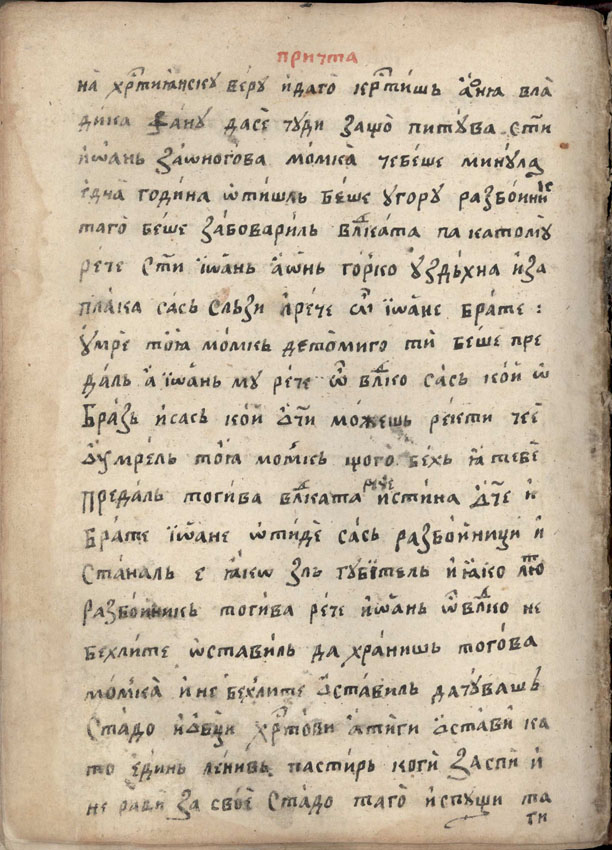 притча
на хрⷭ҇тїѧнску вѣру и даго крⷭ҇тишь а ѡнїа вла
дика фану дасе чуди защо питува ст҃и
иѡань за ѡногова момка че бѣше минула
една година ѡтишль бѣше у гору разбоиникⷭ҇
таго бѣше забоварилъ влⷣката па катому
рече ст҃и їѡань а ѡнь горко уздъхна и за
плака сась слъзи и рече ѡ҆ їѡане брате :
умре тоѧ момкь дето миго ти беше пре
даль а їѡань му рече ѽ влⷣко сась кой ѡ
бразь и сась кой ѻч҃и можешь ректи че е
ѹмрель тоѧ момкь що го бехь ꙗ тебе
предаль тогива влⷣката рече истина ѻч҃е и
брате їѡане ѡтиде сась разбойници и
станаль е ꙗкѡ зль губїтель и ꙗко лю
разбойникь тогива рече иѡань ѽ влⷣко не
бехлите ѡставиль да хранишь тогова
момка и не бехлите ѻставиль да чувашь
стадо и ѻвци хрⷭ҇тови а ти ги ѻстави ка
то единь ленивь пастирь коги заспи и
не ради за свое стадо таго испущи та
ти